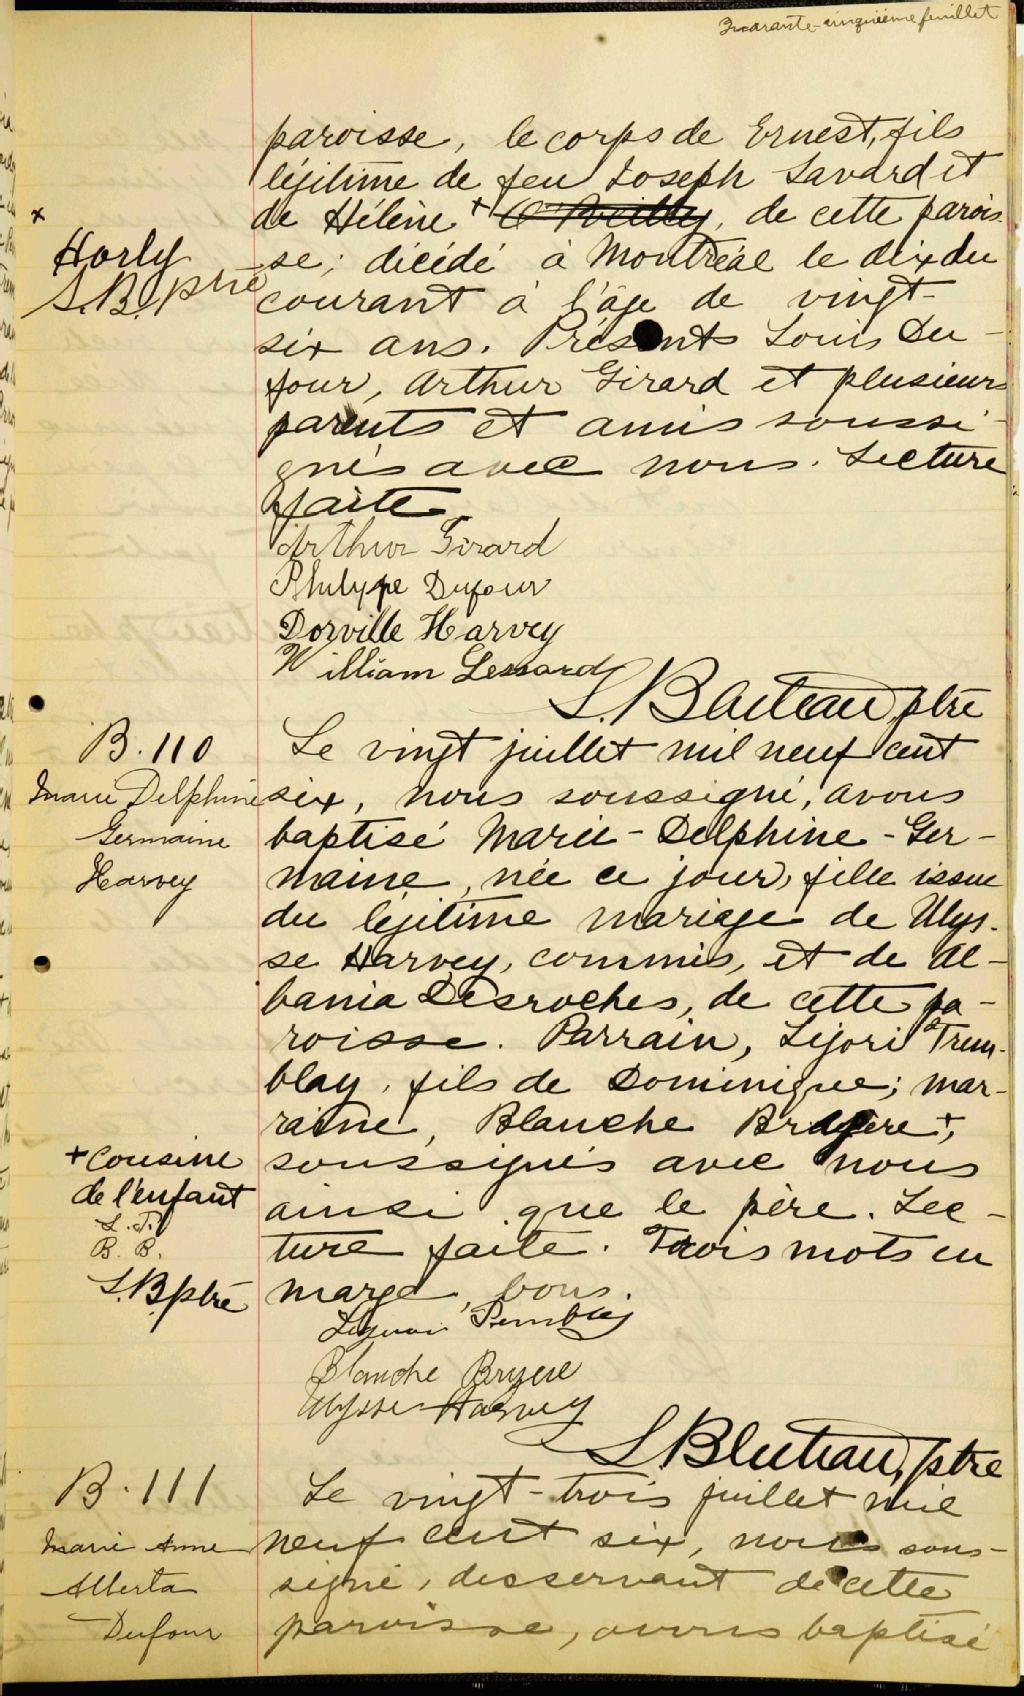 Quarante-cinquième feuillet
paroisse, le corps de Ernest, fils
légitime de feu Joseph Savard et
de Hélène + O'Reilley, de cette parois-
+
Harly
S.B. ptre
se; décédé à Montréal le dix du
courant à l'âge de vingt-
six ans. Présents Louis Du-
four, Arthur Girard et plusieurs
parents et amis soussi-
gnés avec nous. Lecture
faite
Arthur Girard
Philippe Dufour
Dorville Harvey
William Lessard
L. Bluteau, ptre
B. 110
Marie Delphine
Germaine
Harvey
Le vingt juillet mil neuf cent
six, nous soussigné, avons
baptisé Marie-Delphine-Ger-
maine, née ce jour, fille issue
du légitime mariage de Ulys-
se Harvey, commis, et de Al-
bania Desroches, de cette pa-
roisse. Parrain, Ligori Trem-
blay, fils de Dominique; mar-
raine, Blanche Brugère +,
soussignés avec nous
ainsi que le père. Lec-
ture faite. Trois mots en
marge, bons.
+ cousine
de l'enfant
L. T.
B. B.
L.B. ptre
Liguori Tremblay
Blanche Bryere
Ulysse Harvey
L. Bluteau, ptre
B. 111
Marie Anne
Alberta
Dufour
Le vingt-trois juillet mil
neuf cent six, nous sous-
signé, desservant de cette
paroisse, avons baptisé